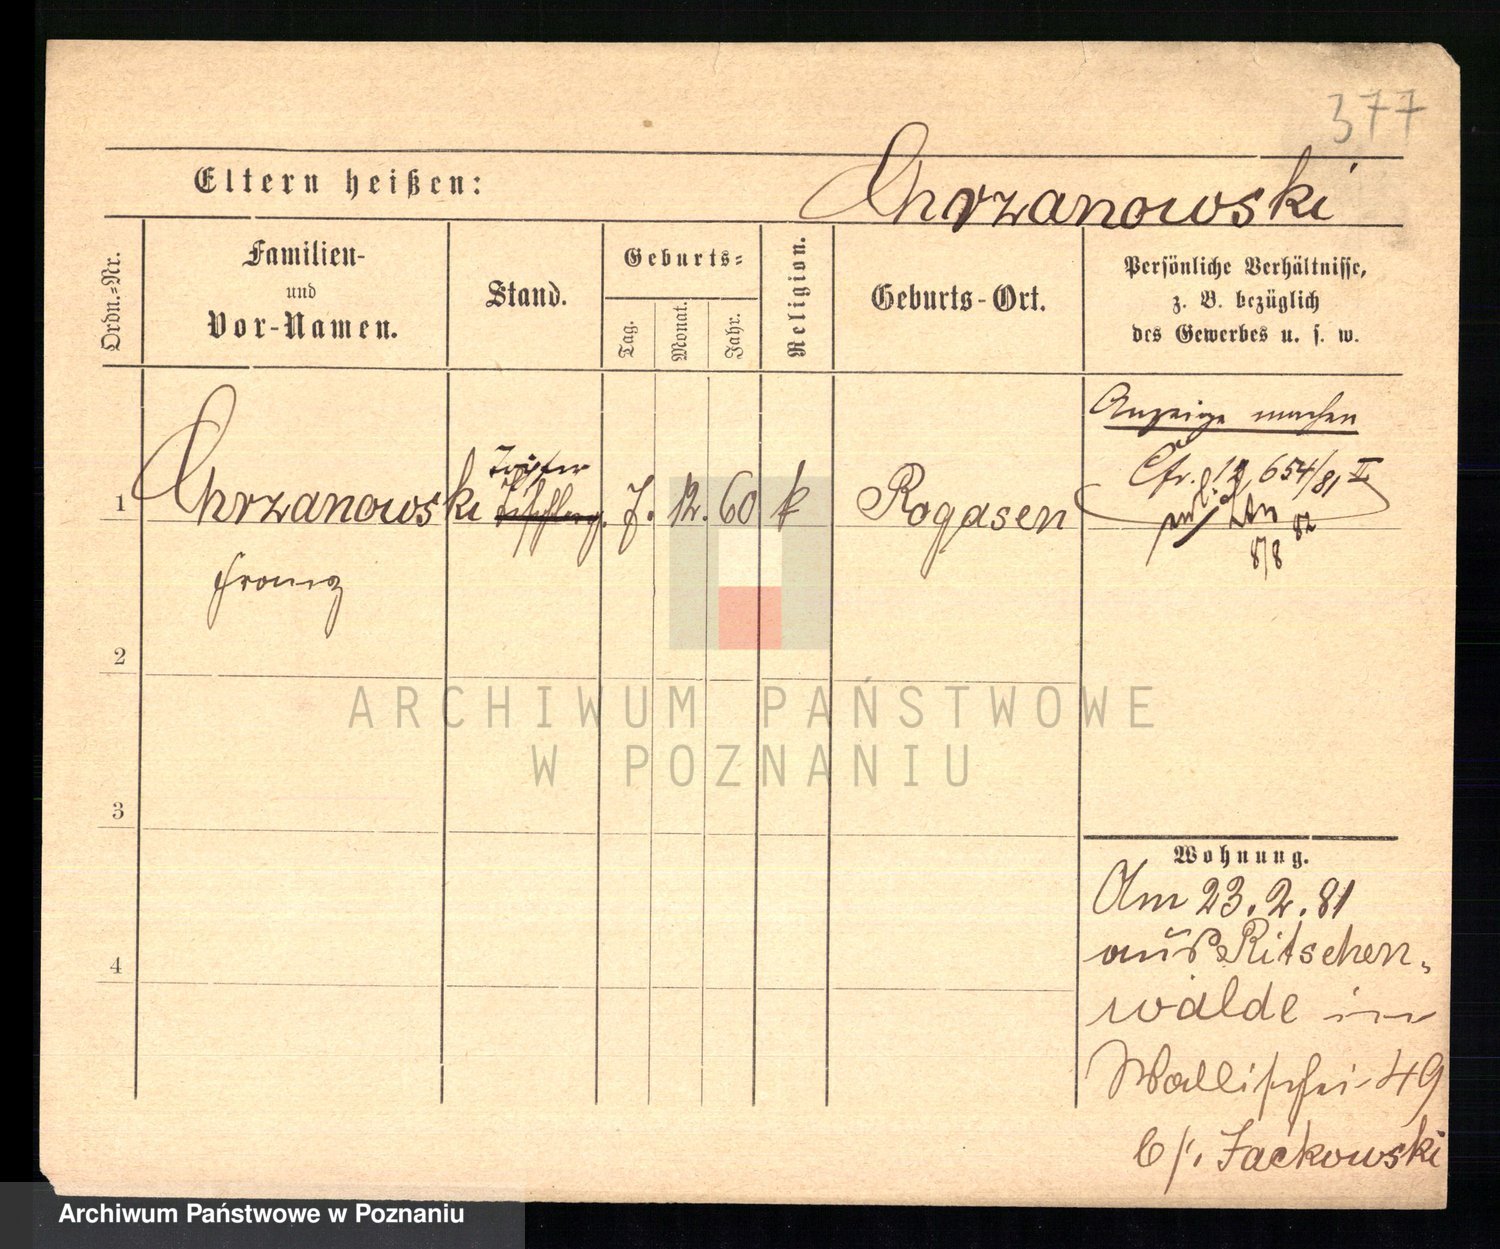 377
Eltern heißen: Chrzanowski
Ordn.-Nr.
Familien-
und
Vor-Namen.
Stand.
Geburts-
Tag.
Monat.
Jahr.
Religion.
Geburts-Ort.
Persönliche Verhältnisse,
z. B. bezüglich
des Gewerbes u. s. w.
Anzeige machen
Cfr. 12,654/81 II
Töpfer
1 Chrzanowski 7. 12. 60 k Rogasen
82
8/8
Franz
2
ARCHIWUM PAŃSTWOWE
W POZNANIU
3
Wohnung.
Am 23. 2. 81
aus Ritschen-
walde in
Wallischei 49
b/. Jackowski
4
Archiwum Państwowe w Poznaniu